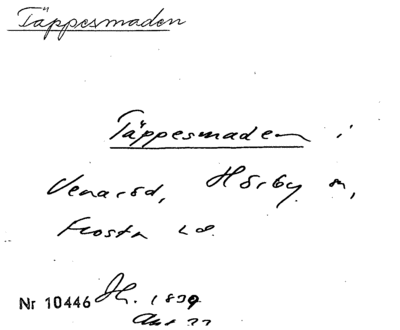 Täppesmaden
Täppesmaden i
Venaröd, Hörby sn,
Frosta hd.
Nr 10446 Jh. 1839
Akt